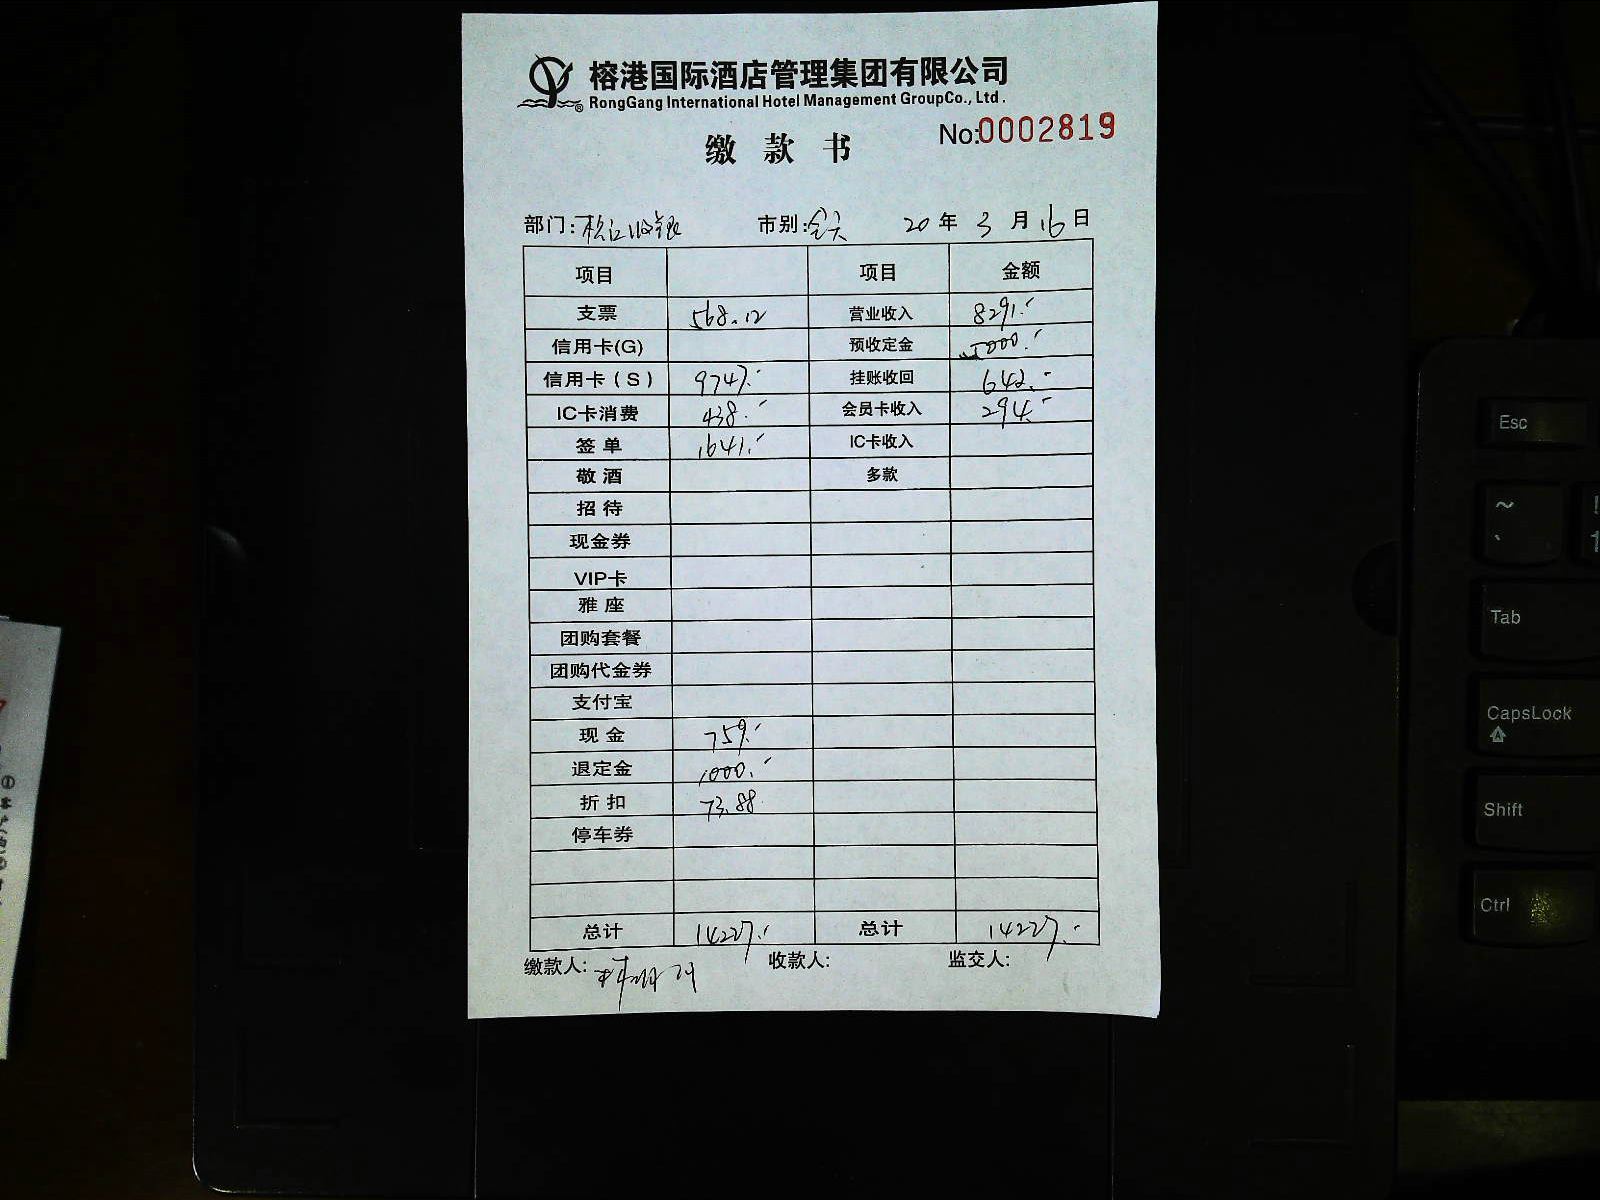 榕港国际酒店管理集团有限公司
® RongGang International Hotel Management GroupCo., Ltd.
No:0002819
缴 款 书
部门:松江收银 市别:全天 20 年 3 月 16 日
项目 项目 金额
支票 568.12 营业收入 8291.-
信用卡(G) 预收定金 5000.-
信用卡(S) 9747.- 挂账收回 642.-
IC卡消费 438.- 会员卡收入 294.-
签 单 1641.- IC卡收入
敬 酒 多款
招 待
现金券
VIP卡
雅 座
团购套餐
团购代金券
支付宝
现 金 759.-
退定金 1000.-
折 扣 73.88
停车券
总计 14227.- 总计 14227.-
缴款人: 收款人: 监交人:
Esc
~
Tab
CapsLock
Shift
Ctrl